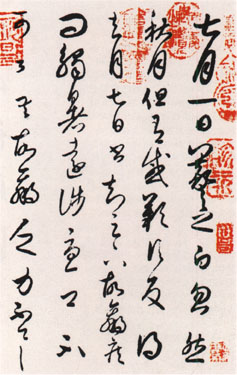 七月一日羲之白忽然
秋月但有感歎信反得
去月七日書知足下故羸疾
問觸暑遠涉憂卿不
可言吾故羸乏力不具